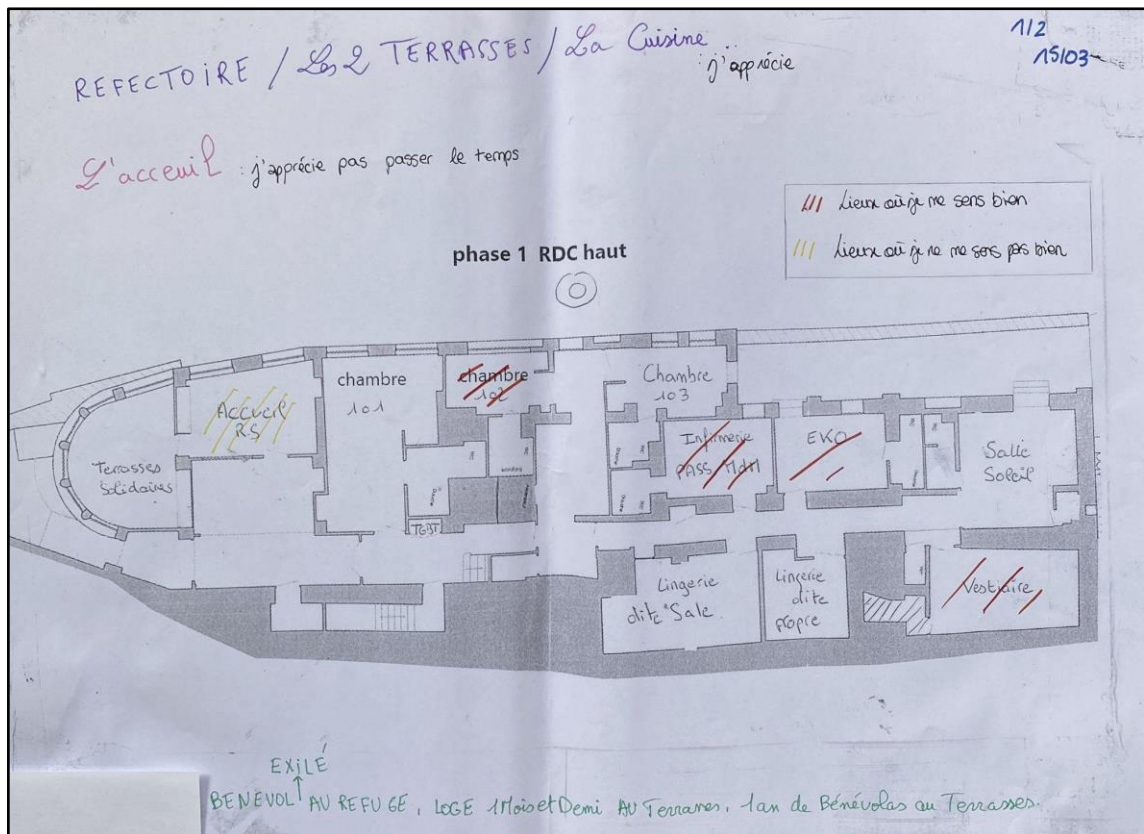 REFECTOIRE / Les 2 TERRASSES / La Cuisine
: j'apprécie
1/2
15/03
L'acceuil : j'apprécie pas passer le temps
/// Lieux où je me sens bien
/// Lieux où je ne me sens pas bien
phase 1 RDC haut
chambre
101
chambre
102
Chambre
103
Accueil
RS
Terrasses
Solidaires
Infirmerie
PASS MdM
EKO
Salle
Soleil
TGBT
Lingerie
dite "Sale
Lingerie
dite
propre
Vestiaire
EXILÉ
BENEVOL AU REFUGE, LOGE 1 Mois et Demi AU Terrasses, 1an de Bénévolas au Terrasses.